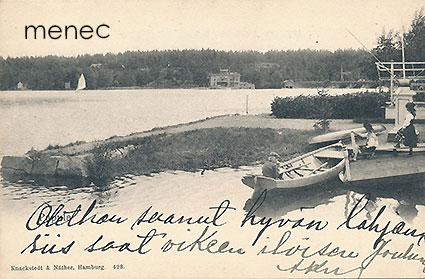 menec
Olethan saanut hyvän lahjan
siis saat vikeen ilvisen Joulun
Knackstedt & Näther, Hamburg. 428.